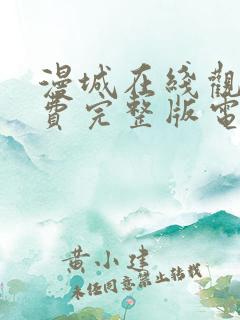 漫城在綫觀
費完整版電
黄小建
未经同意禁止转载